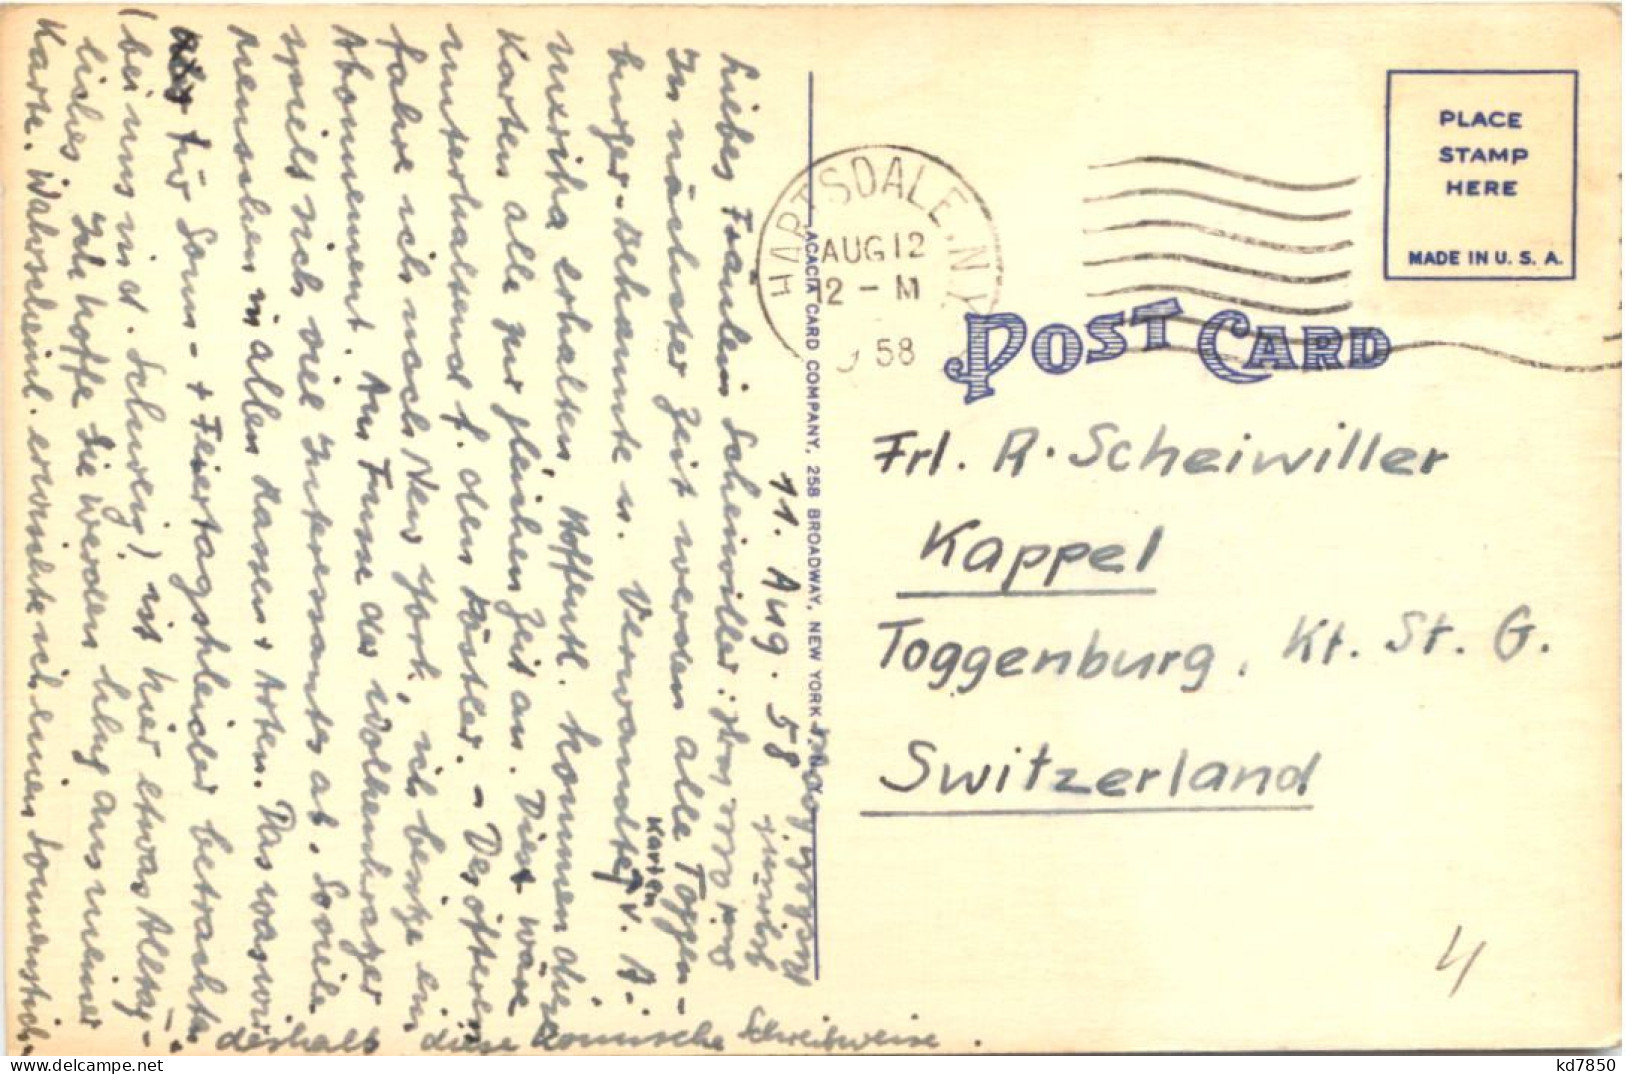 11. Aug. 58
Liebes Fräulein Scheiwiller!
In nächster Zeit werden alle Toggen-
burger-Bekannte u. Verwandte Karten v. A-
merika erhalten. Hoffentl. kommen die
Karten alle zur gleichen Zeit an. Dies wäre
unterhaltsend f. den Pöstler. - Des öfteren
fahre ich nach New York, ich besitze ein
Abonnement. Am Fusse der Wolkenkratzer
spielt sich viel Interessantes ab. Soviele
Menschen in allen Rassen + Arten. Das was wir
für Sonn- + Feiertagskleider betrachten
(bei uns in d. Schweiz) ist hier etwas Alltäg-
liches. Ich hoffe Sie werden klug aus meiner
Karte. Wahrscheinl. erwischte ich einen Sonnenstich.
deshalb diese komische Schreibweise.
HARTSDALE, N.Y.
AUG 12
12 - M
58
ACACIA CARD COMPANY, 258 BROADWAY, NEW YORK
PLACE
STAMP
HERE
MADE IN U. S. A.
POST CARD
Frl. R. Scheiwiller
Kappel
Toggenburg, Kt. St. G.
Switzerland
4
kd7850